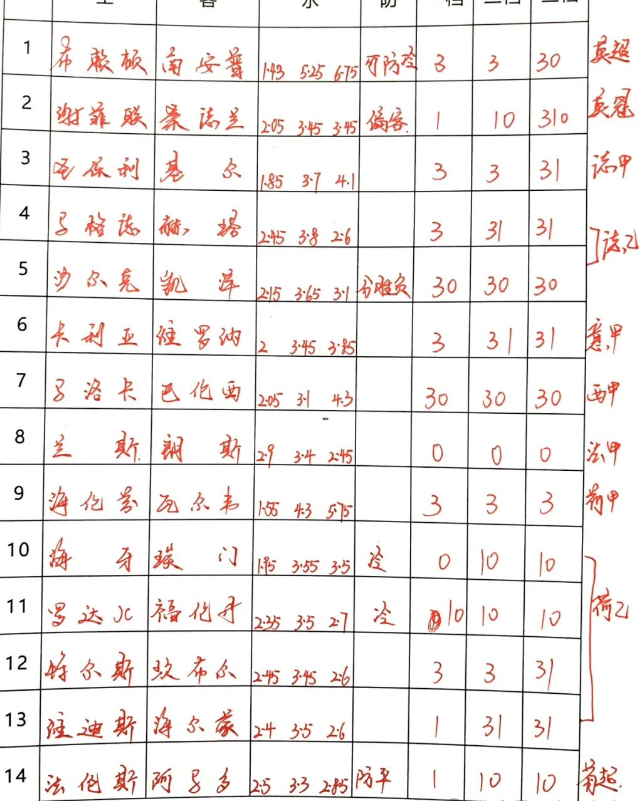 主 客 水 防 一档 二档 三档
1 布赖顿 南安普 1.43 5.25 6.75 可防冷 3 3 30 英超
2 谢菲联 桑德兰 2.05 3.45 3.45 偏客 1 10 310 英冠
3 圣保利 基尔 1.85 3.7 4.1 3 3 31 德甲
4 马格德 赫塔 2.45 3.8 2.6 3 31 31
5 沙尔克 凯泽 2.15 3.65 3.1 分难负 30 30 30 德乙
6 卡利亚 维罗纳 2 3.45 3.85 3 31 31 意甲
7 马洛卡 巴伦西 2.05 3.1 4.3 30 30 30 西甲
8 兰斯 朗斯 2.9 3.4 2.45 0 0 0 法甲
9 海伦芬 瓦尔韦 1.55 4.3 5.75 3 3 3 荷甲
10 海牙 埃门 1.95 3.55 3.5 冷 0 10 10
11 罗达JC 福伦丹 2.35 3.5 2.7 冷 10 10 10 荷乙
12 特尔斯 坎布尔 2.45 3.45 2.6 3 3 31
13 维迪斯 海尔蒙 2.4 3.5 2.6 1 31 31
14 法伦斯 阿马多 2.5 3.3 2.85 防平 1 10 10 葡超